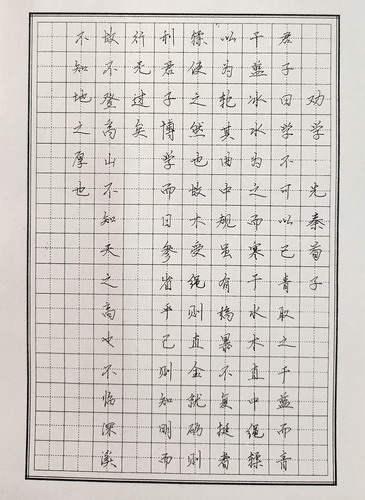 劝学·先秦荀子
君子曰学不可以已青取之于蓝而青
于蓝冰水为之而寒于水木直中绳輮
以为轮其曲中规虽有槁暴不复挺者
輮使之然也故木受绳则直金就砺则
利君子博学而日参省乎己则知明而
行无过矣
故不登高山不知天之高也不临深溪
不知地之厚也